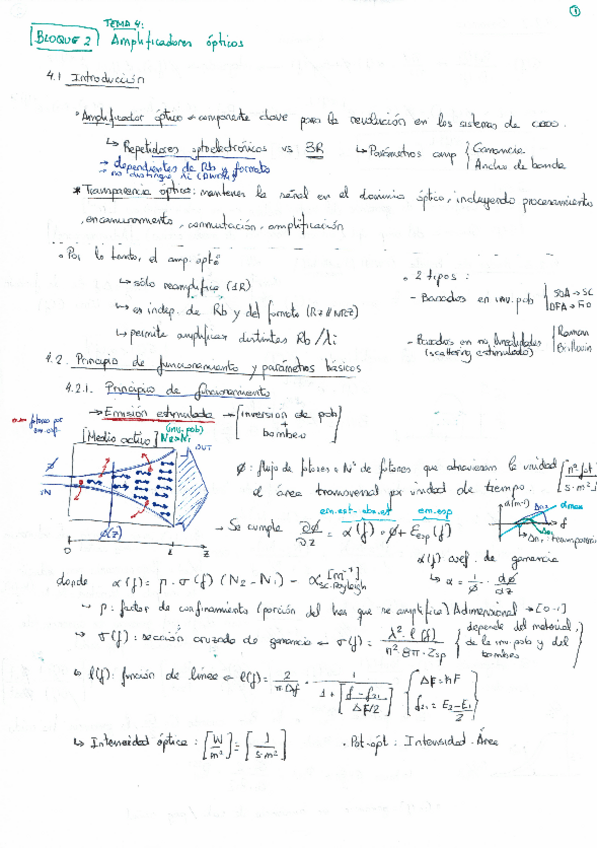 1
BLOQUE 2 TEMA 4: Amplificadores ópticos
4.1 Introducción
Amplificador óptico → componente clave para la revolución en los sistemas de
↳ Repetidores optoelectrónicos vs 3R ↳ Parámetros amp { Ganancia
Ancho de banda
→ dependientes de Rb y formato
→ no distingue λi (DWDM)
* Transparencia óptica: mantener la señal en el dominio óptico, incluyendo procesamiento
, encaminamiento, conmutación, amplificación
Por lo tanto, el amp. ópt:
↳ sólo reamplifica (1R)
↳ es indep. de Rb y del formato (RZ//NRZ)
↳ permite amplificar distintas Rb/λi
2 tipos:
- Basados en inv. pob { SOA → SC
DFA → FO
- Basados en no linealidades { Raman
Brillouin
(scattering estimulado)
4.2. Principio de funcionamiento y parámetros básicos
4.2.1. Principio de funcionamiento
→ Emisión estimulada → [inversión de pob
+
bombeo]
→ fotones por
[Medio activo] (inv. pob) N2>N1
OUT
ϕ
IN
ϕ(z)
0 L z
ϕ: flujo de fotones = Nº de fotones que atraviesan la unidad [nº fot
s·m²]
el área transversal por unidad de tiempo.
em.est-abs.est em.esp
- Se cumple ∂ϕ/∂z = α(f)·ϕ + Eesp(f)
α(m⁻¹) αmax
f
transparencia
α(f) coef. de ganancia
↳ α = 1/ϕ · dϕ/dz
donde α(f) = p·σ(f) (N2 - N1) - αsc.Rayleigh [m⁻¹]
↳ p: factor de confinamiento (porción del haz que se amplifica) Adimensional → [0-1]
↳ σ(f): sección cruzada de ganancia → σ(f) = λ²·l(f) / n²·8π·Zsp { depende del material,
de la inv. pob y del
bombeo }
↳ l(f): función de línea → l(f) = 2/πΔf · 1/(1 + [f - f21 / Δf/2]) { ΔE = hF
f21 = E2 - E1 / }
↳ Intensidad óptica: [W/m²] = [J/s·m²] · Pot.ópt: Intensidad · Área